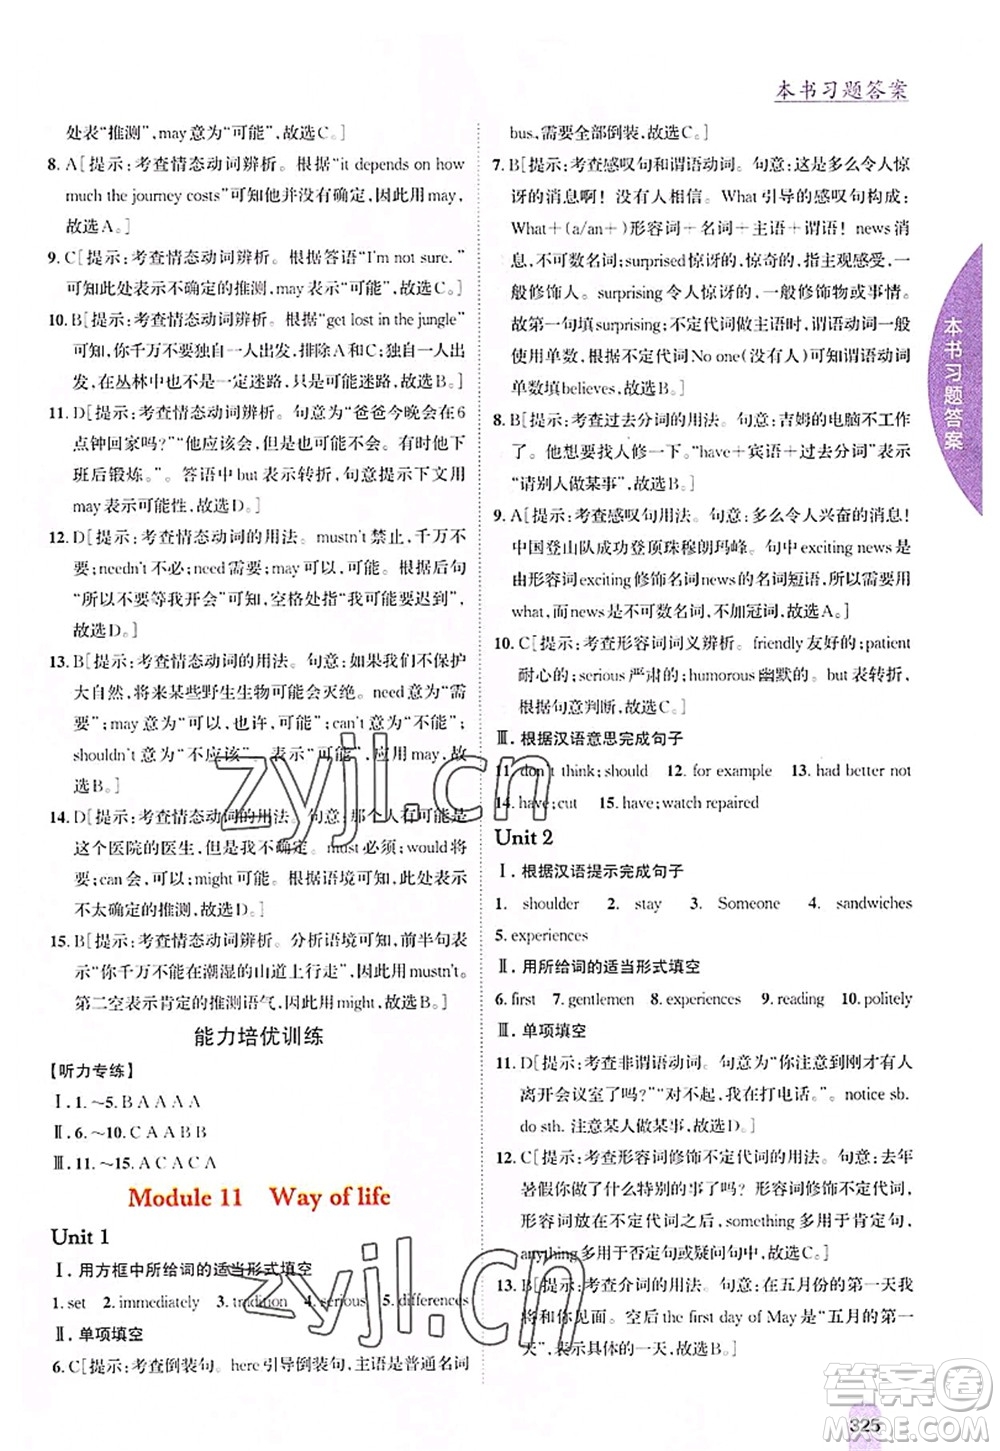 本书习题答案
处表“推测”,may意为“可能”,故选C。]
8. A[提示:考查情态动词辨析。根据“it depends on how
much the journey costs”可知他并没有确定,因此用may,
故选A。]
9. C[提示:考查情态动词辨析。根据答语“I'm not sure.”
可知此处表示不确定的推测,may表示“可能”,故选C。]
10. B[提示:考查情态动词辨析。根据“get lost in the jungle”
可知,你千万不要独自一人出发,排除A和C;独自一人出
发,在丛林中不是一定迷路,只是可能,故选B。]
11. D[提示:考查情态动词辨析。句意为“爸爸今晚会在6
点钟回家吗?”“他应该会,但是也可能不会,有时他下
班后锻炼。”答语中but表示转折,句意提示下文用may
表示可能性,故选D。]
12. D[提示:考查情态动词辨析。mustn't禁止,千万不
要;needn't不必;need需要;may可能。根据后句
“所以不要等我开会”可知,空格处指“我可能要迟到”,
故选D。]
13. B[提示:考查情态动词的用法。句意:如果我们不保护
大自然,将来某些野生生物可能会灭绝。need意为“需
要”;may意为“可以,也许,可能”;can't意为“不能”;
shouldn't意为“不应该”。表示“可能”,应用may,故
选B。]
14. D[提示:考查情态动词的用法。句意:那个人可能是
这个医院的医生,但是我不确定。must必须;could
能;can能;might可能。根据语境可知,此处表示一种
不太确定的推测,故选D。]
15. B[提示:考查情态动词辨析。分析语境可知,前半句表
示“你千万不能在潮湿的山道上行走”,故用mustn't。
第二空表示肯定的推测语气,故用might,故选B。]
能力培优训练
【听力专练】
Ⅰ. 1. ~5. B A A A A
Ⅱ. 6. ~10. C A A B B
Ⅲ. 11. ~15. A C A C A
Module 11 Way of life
Unit 1
Ⅰ. 用方框中所给词的适当形式填空
1. set 2. immediately 3. tradition 4. serious 5. differences
Ⅱ. 单项填空
6. C[提示:考查倒装句。here引导倒装句,主语是普通名词
bus,需要全部倒装,故选C。]
7. B[提示:考查感叹句和谓语动词。句意:这是多么令人惊
讶的消息啊!没有人相信。What引导的感叹句构成:
What+(a/an+)形容词+名词+主语+谓语!news是
不可数名词;surprised惊讶的,惊奇的,指主观感受,一
般修饰人。surprising令人惊讶的,一般修饰物或事情。
故第一句填surprising;不定代词做主语时,谓语动词一般
使用单数,根据不定代词No one(没有人)可知谓语动词
单数填believes,故选B。]
8. B[提示:考查过去分词的用法。句意:吉姆的电脑不工作
了。他要找人去修理它。“have+宾语+过去分词”表示
“请别人做某事”,故选B。]
9. A[提示:考查感叹句用法。句意:多么令人兴奋的消息!
中国登山队成功登顶珠穆朗玛峰。本句中exciting news
是由形容词exciting修饰名词news的名词短语,所以用
what,而news是不可数名词,不加冠词,故选A。]
10. C[提示:考查形容词词义辨析。friendly友好的;patient
耐心的;serious严肃的;humorous幽默的。but表转折,
根据句意判断,故选C。]
Ⅲ. 根据汉语意思完成句子
11. don't think;should 12. for example 13. had better not
14. have;cut 15. have;watch repaired
Unit 2
Ⅰ. 根据汉语提示完成句子
1. shoulder 2. stay 3. Someone 4. sandwiches
5. experiences
Ⅱ. 用所给词的适当形式填空
6. first 7. gentlemen 8. experiences 9. reading 10. politely
Ⅲ. 单项填空
11. D[提示:考查非谓语动词。句意为“你注意到刚才有人
离开会议室了吗?”“对不起,我在打电话。”notice sb.
do sth. 注意某人做某事,故选D。]
12. C[提示:考查形容词修饰不定代词的用法。句意:去年
暑假你做了什么特别的事情吗?形容词修饰不定代词,
形容词放在不定代词之后,something多用于肯定句,
anything常用于否定句和疑问句,故选C。]
13. B[提示:考查介词的用法。句意:在五月份的第一天我
将和你见面。空后the first day of May是“五月的第一
天”,表示具体的一天,故选B。]
本书习题答案
zyjl.cn
zyjl.cn
答案圈
MXQE.COM
325